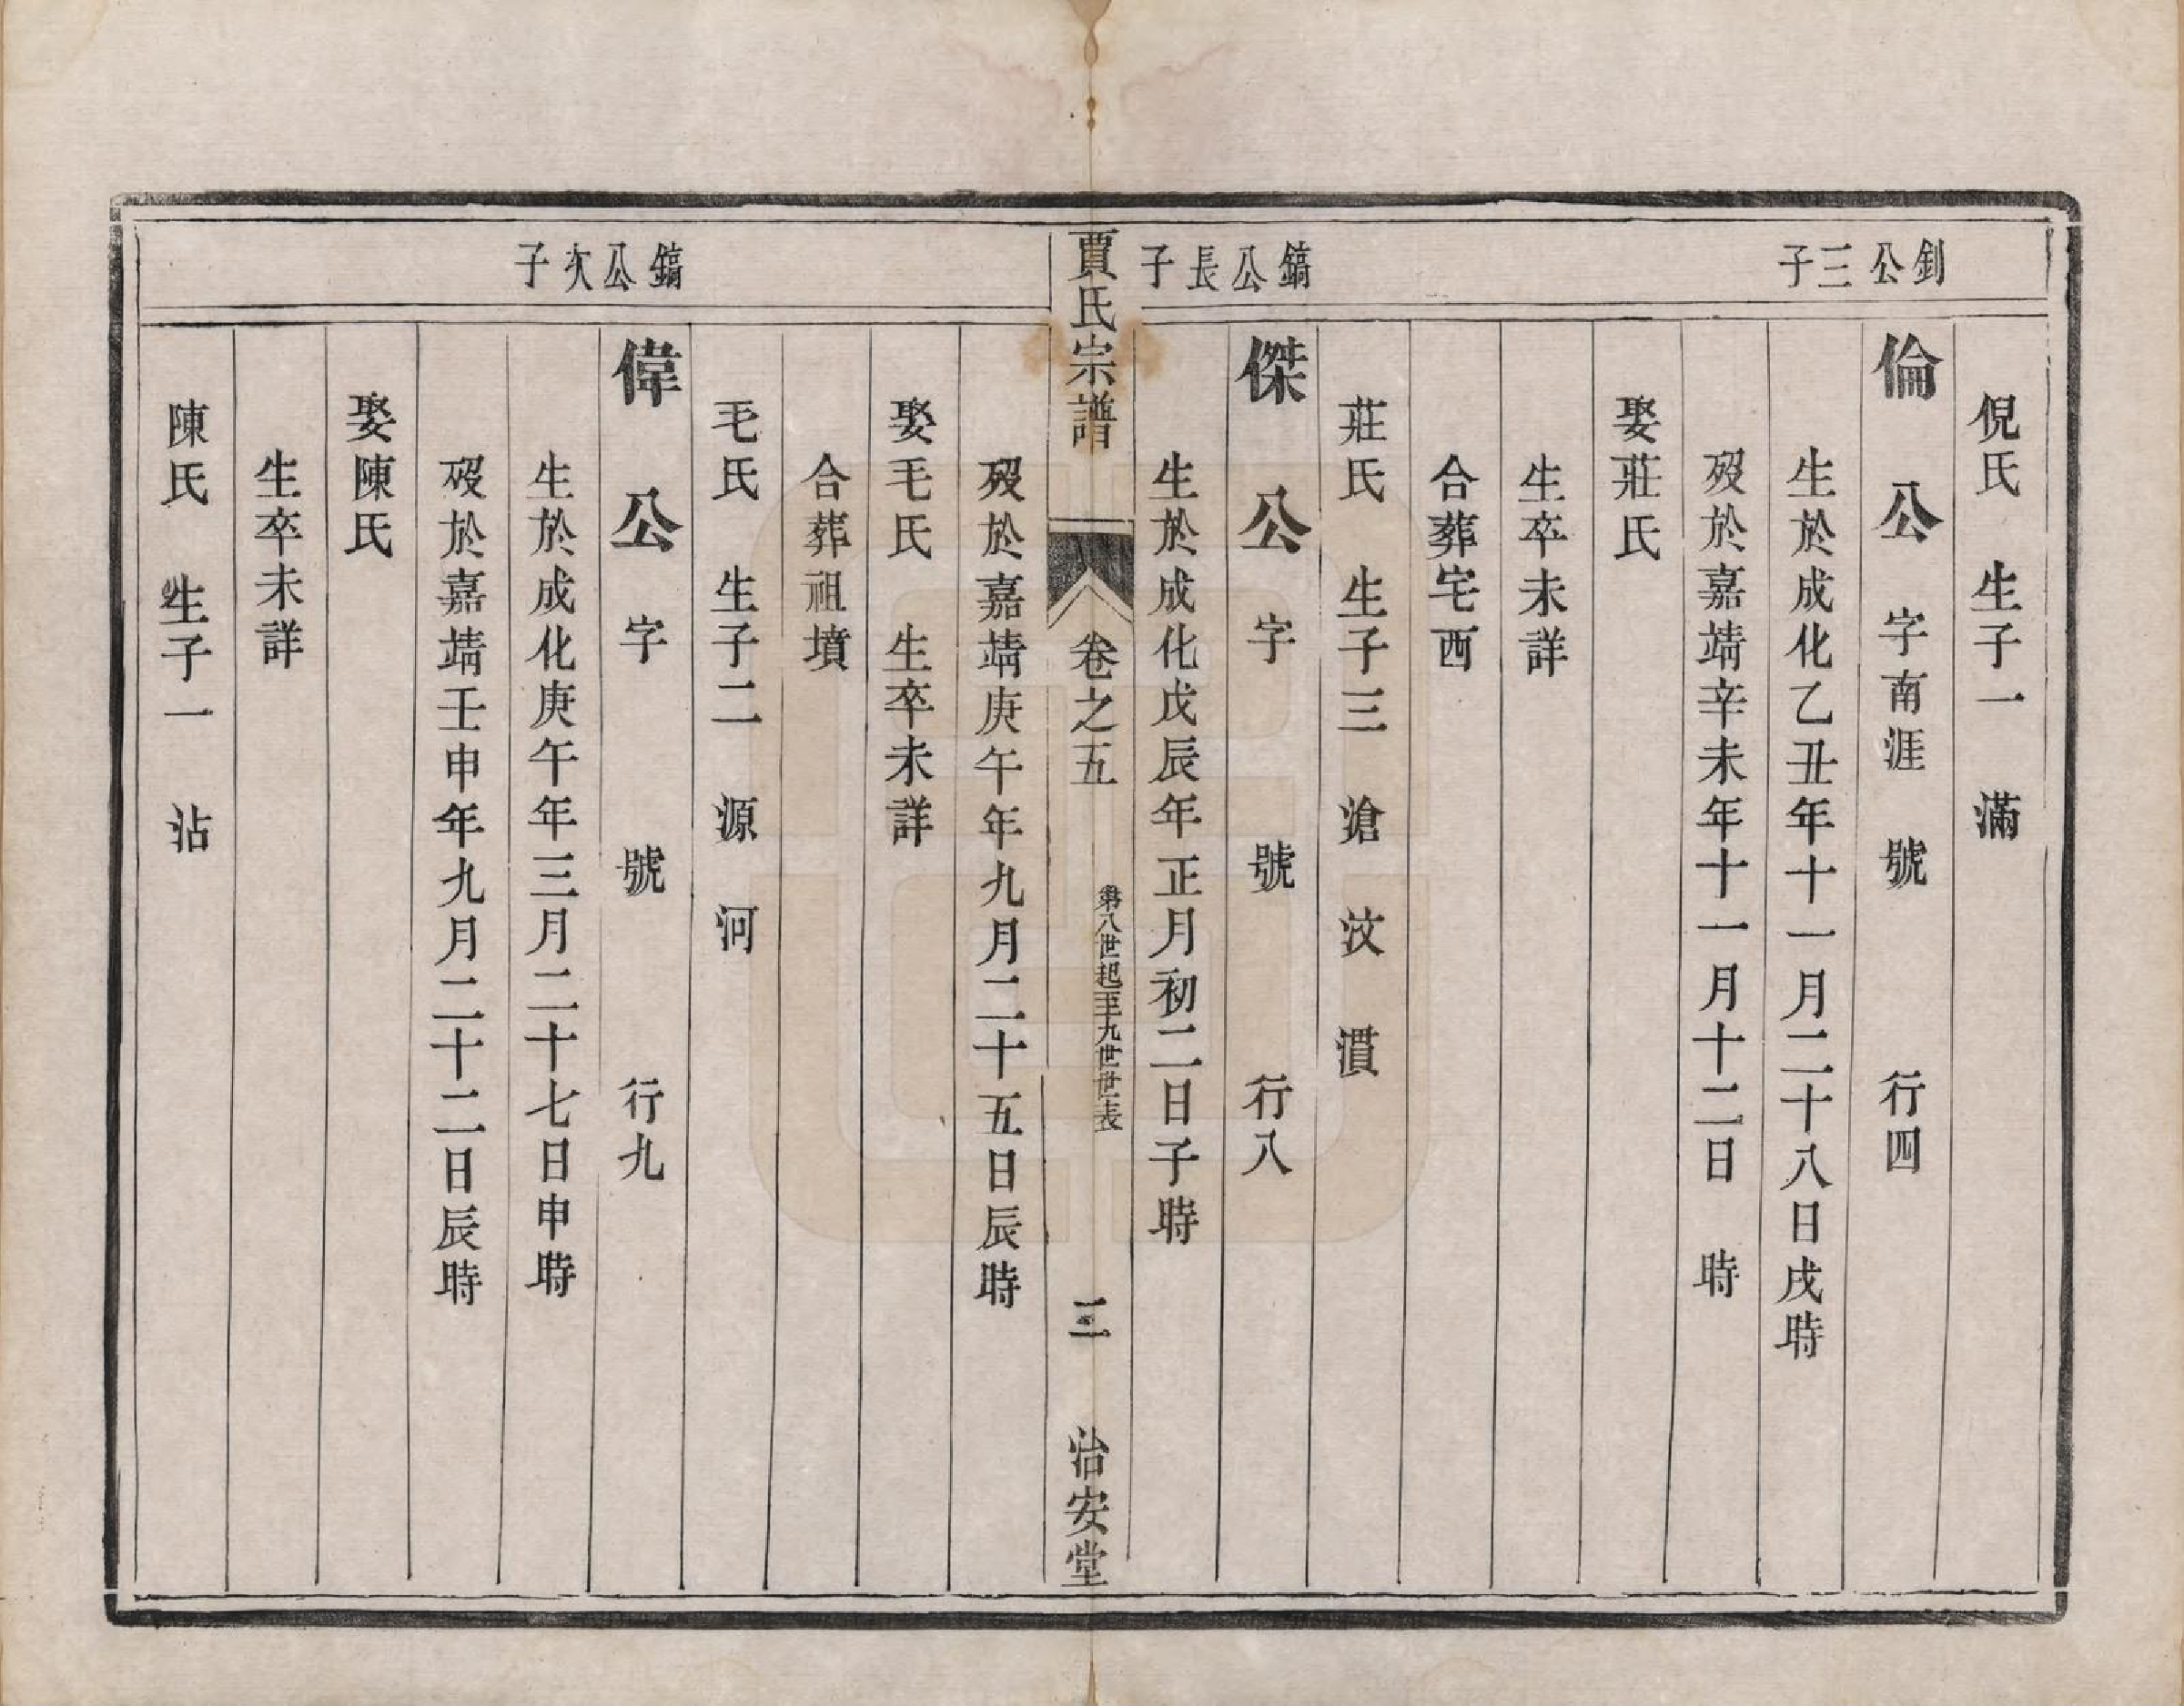 釗公三子
鎬公長子
倪氏 生子一 滿
倫公 字南涯 號 行四
生於成化乙丑年十一月二十八日戌時
歿於嘉靖辛未年十一月十二日 時
娶莊氏
生卒未詳
合葬宅西
莊氏 生子三 滄 汶 濆
傑公 字 號 行八
生於成化戊辰年正月初二日子時
賈氏宗譜 卷之五 第八世起至九世世表 三 治安堂
鎬公次子
歿於嘉靖庚午年九月二十五日辰時
娶毛氏 生卒未詳
合葬祖墳
毛氏 生子二 源 河
偉公 字 號 行九
生於成化庚午年三月二十七日申時
歿於嘉靖壬申年九月二十二日辰時
娶陳氏
生卒未詳
陳氏 生子一 沾